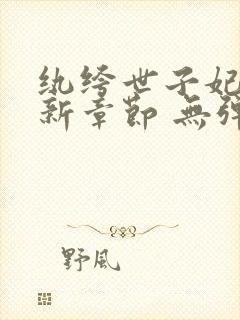 纨绔世子妃
新章節 無彈
野風